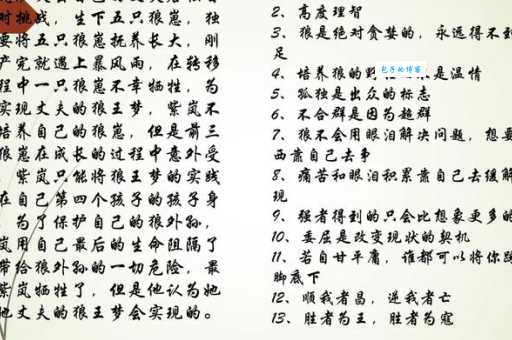 对挑战，生下五只狼崽，独
要将五只狼崽抚养长大，刚
产完就遇上暴风雨，在转移
程中一只狼崽不幸牺牲，为
实现丈夫的狼王梦，紫岚不
培养自己的狼崽，但是前三
狼崽在成长的过程中意外受
紫岚只能将狼王梦的实践
在自己第四个孩子的孩子身
为了保护自己的狼外孙，
岚用自己最后的生命阻隔了
带给狼外孙的一切危险，最
紫岚牺牲了，但是他认为她
他丈夫的狼王梦会实现的。
2、高度理智
3、狼是绝对贪婪的，永远得不到
足
4、培养狼的野 是温情
包子的博客
5、孤独是出众的标志
6、不合群是因为超群
7、狼不会用眼泪解决问题，想要
西靠自己去争
8、痛苦和眼泪积累靠自己去缓解
现
9、强者得到的只会比想象更多的
10、委屈是改变现状的契机
11、若自甘平庸，谁都可以将你踩
脚底下
12、顺我者昌，逆我者亡
13、胜者为王，胜者为寇